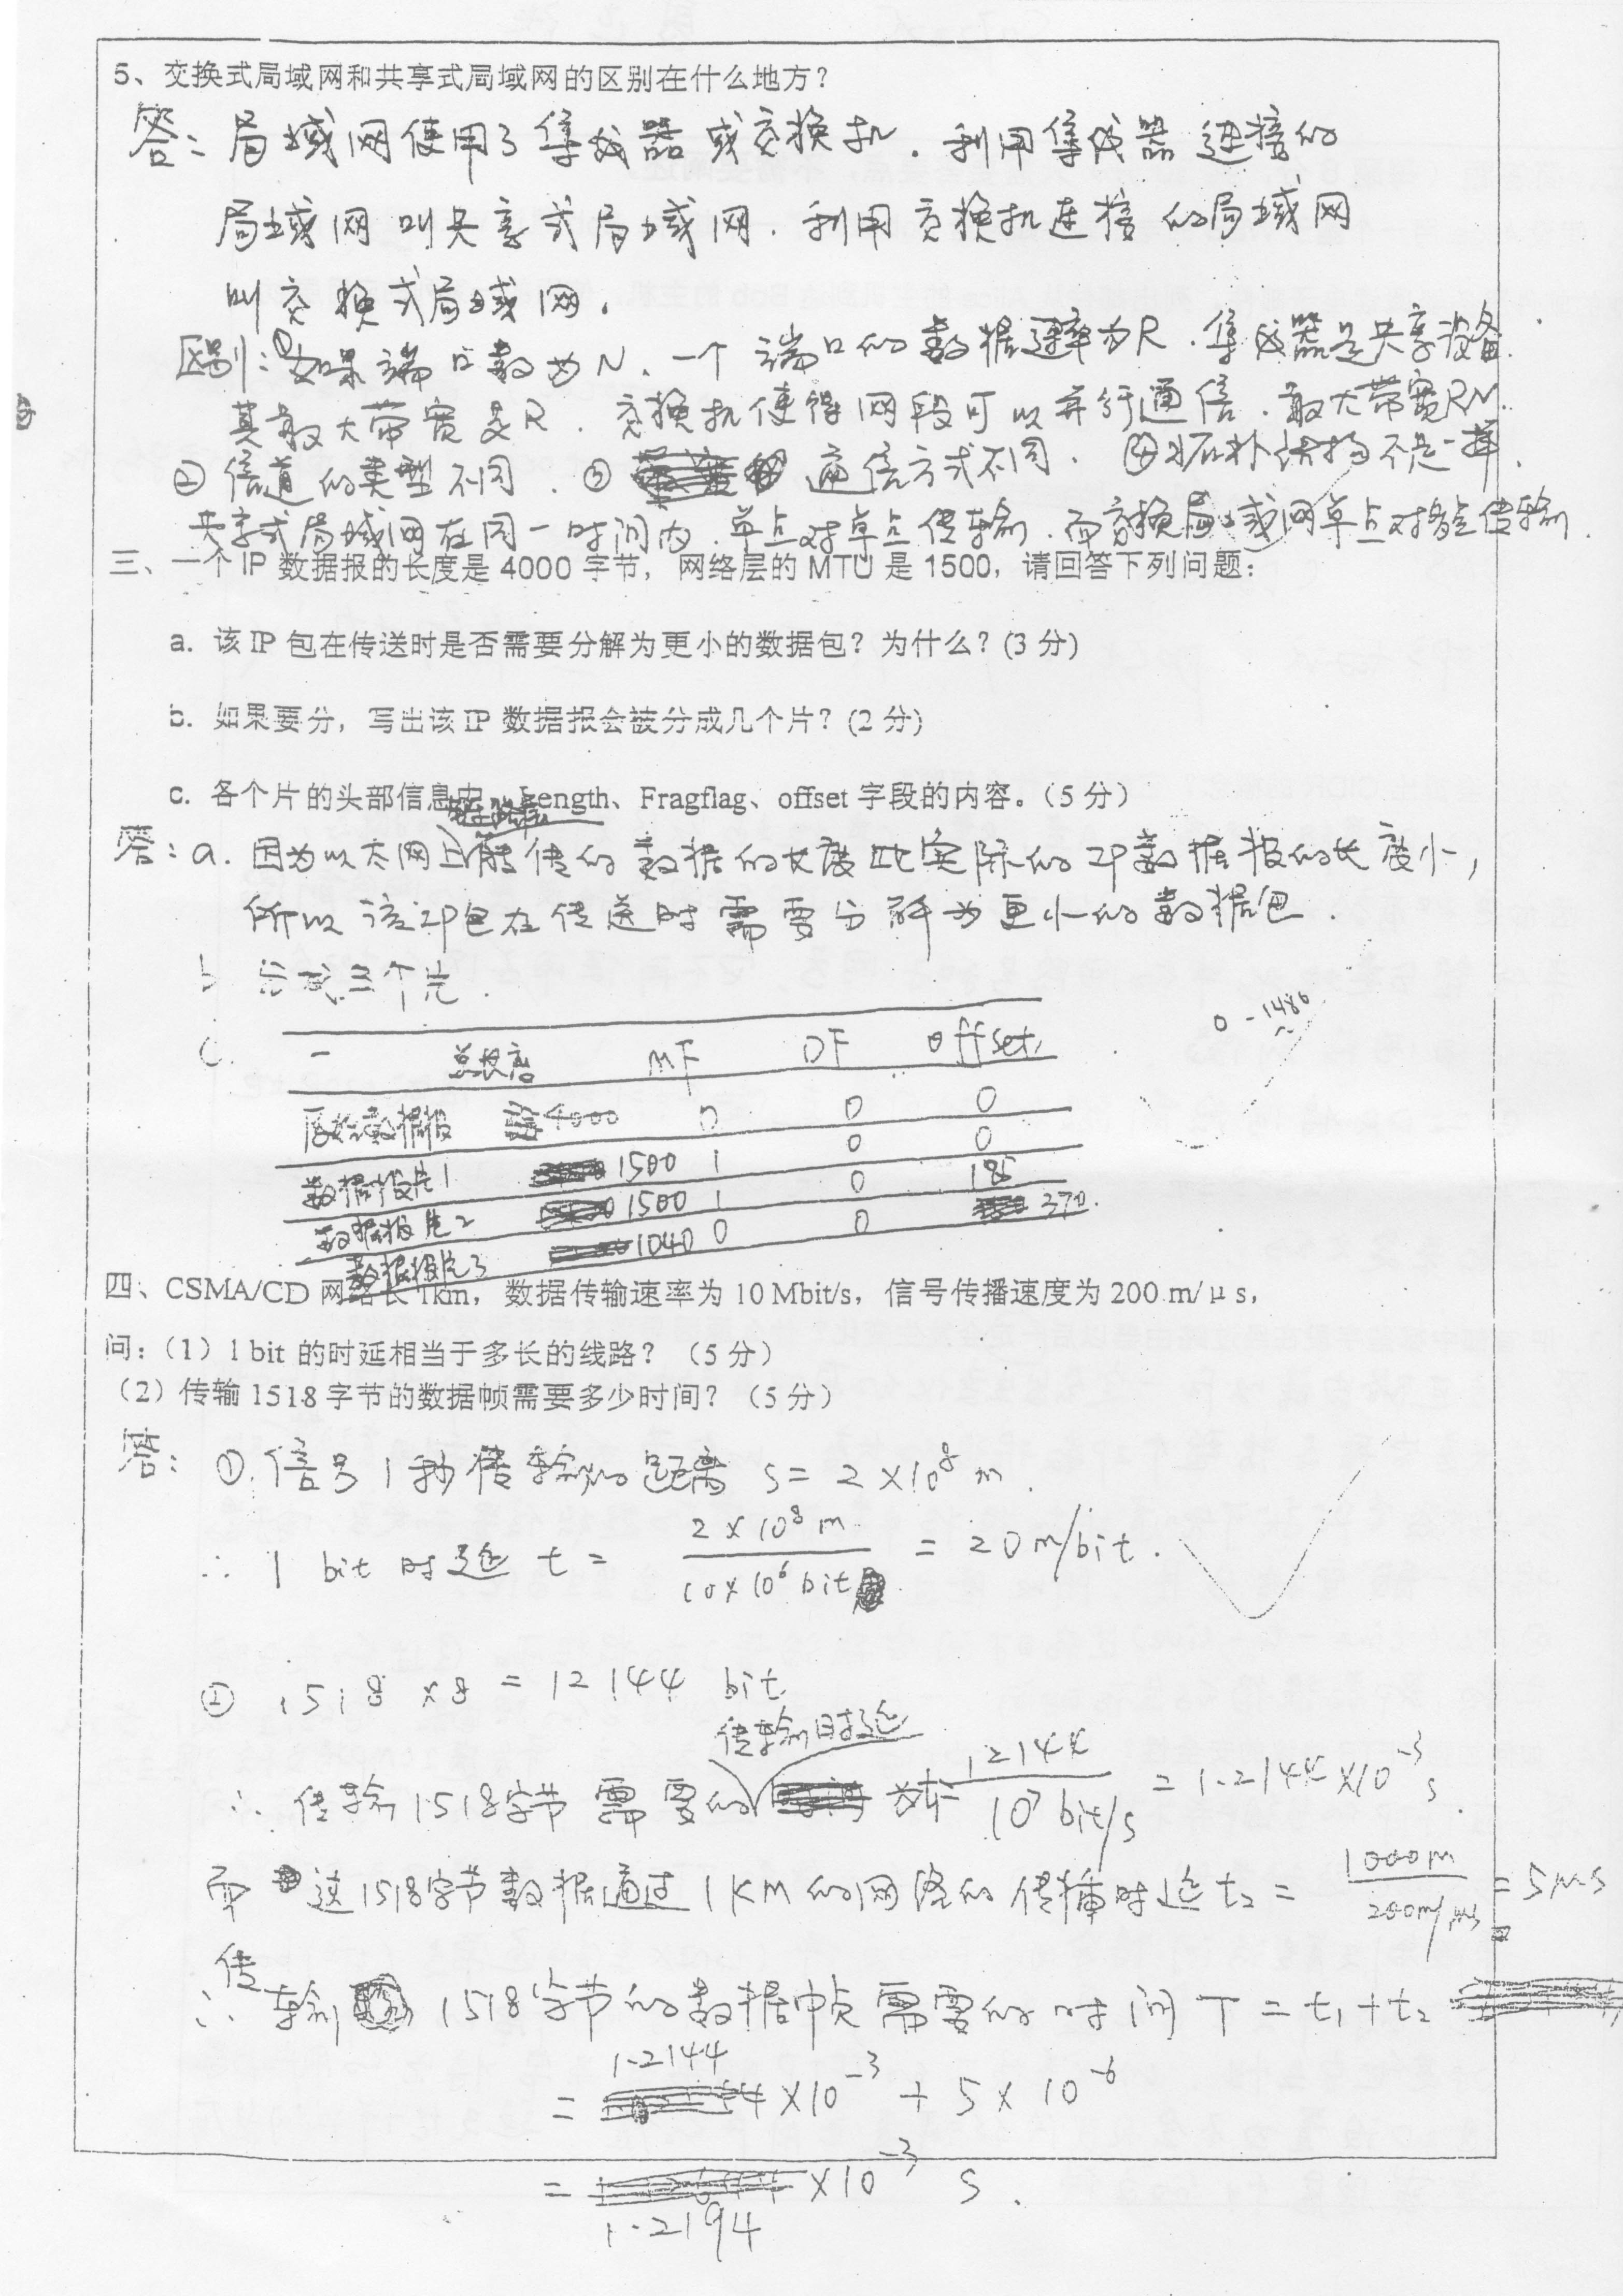 5、交换式局域网和共享式局域网的区别在什么地方？
答：局域网使用了集线器或交换机．利用集线器连接的
局域网叫共享式局域网．利用交换机连接的局域网
叫交换式局域网．
区别：①如果端口数为N、一个端口的数据速率为R．集线器是共享设备．
其最大带宽是R．交换机使得网段可以并行通信．最大带宽RN．
②信道的类型不同．③通信方式不同．④拓朴结构不是一样．
共享式局域网在同一时间内．单点对单点传输．而交换局域网单点对多点传输．
三、一个IP数据报的长度是4000字节，网络层的MTU是1500，请回答下列问题：
a. 该IP包在传送时是否需要分解为更小的数据包？为什么？(3分)
b. 如果要分，写出该IP数据报会被分成几个片？(2分)
c. 各个片的头部信息中，Length、Fragflag、offset字段的内容。（5分）
答：a. 因为以太网所能传的数据的长度比实际的IP数据报的长度小，
所以该IP包在传送时需要分解为更小的数据包．
b 分成三个片．
0 -1480
c. 一 总长度 MF DF offset
原始数据报 4000 0 0 0
数据报片1 1500 1 0 0
数据报片2 1500 1 0 185
数据报片3 1040 0 0 370.
四、CSMA/CD 网络长 1km，数据传输速率为 10 Mbit/s，信号传播速度为 200 m/μs，
问：（1）1 bit 的时延相当于多长的线路？（5分）
（2）传输 1518 字节的数据帧需要多少时间？（5分）
答：①．信号1秒传输的距离 S= 2×10⁸ m．
∴ 1 bit 时延 t = 2×10⁸ m / 10×10⁶ bit = 20 m/bit．
② 1518 ×8 = 12144 bit
∴ 传输1518字节需要的传输时延 t₁= 12144 / 10⁷ bit/s = 1.2144×10⁻³ s．
而这1518字节数据通过1KM的网络的传播时延 t₂ = 1000m / 200m/μs = 5μs
∴ 传输1518字节的数据帧需要的时间 T = t₁+t₂
= 1.2144 ×10⁻³ + 5×10⁻⁶
= 1.2194 ×10⁻³ S．